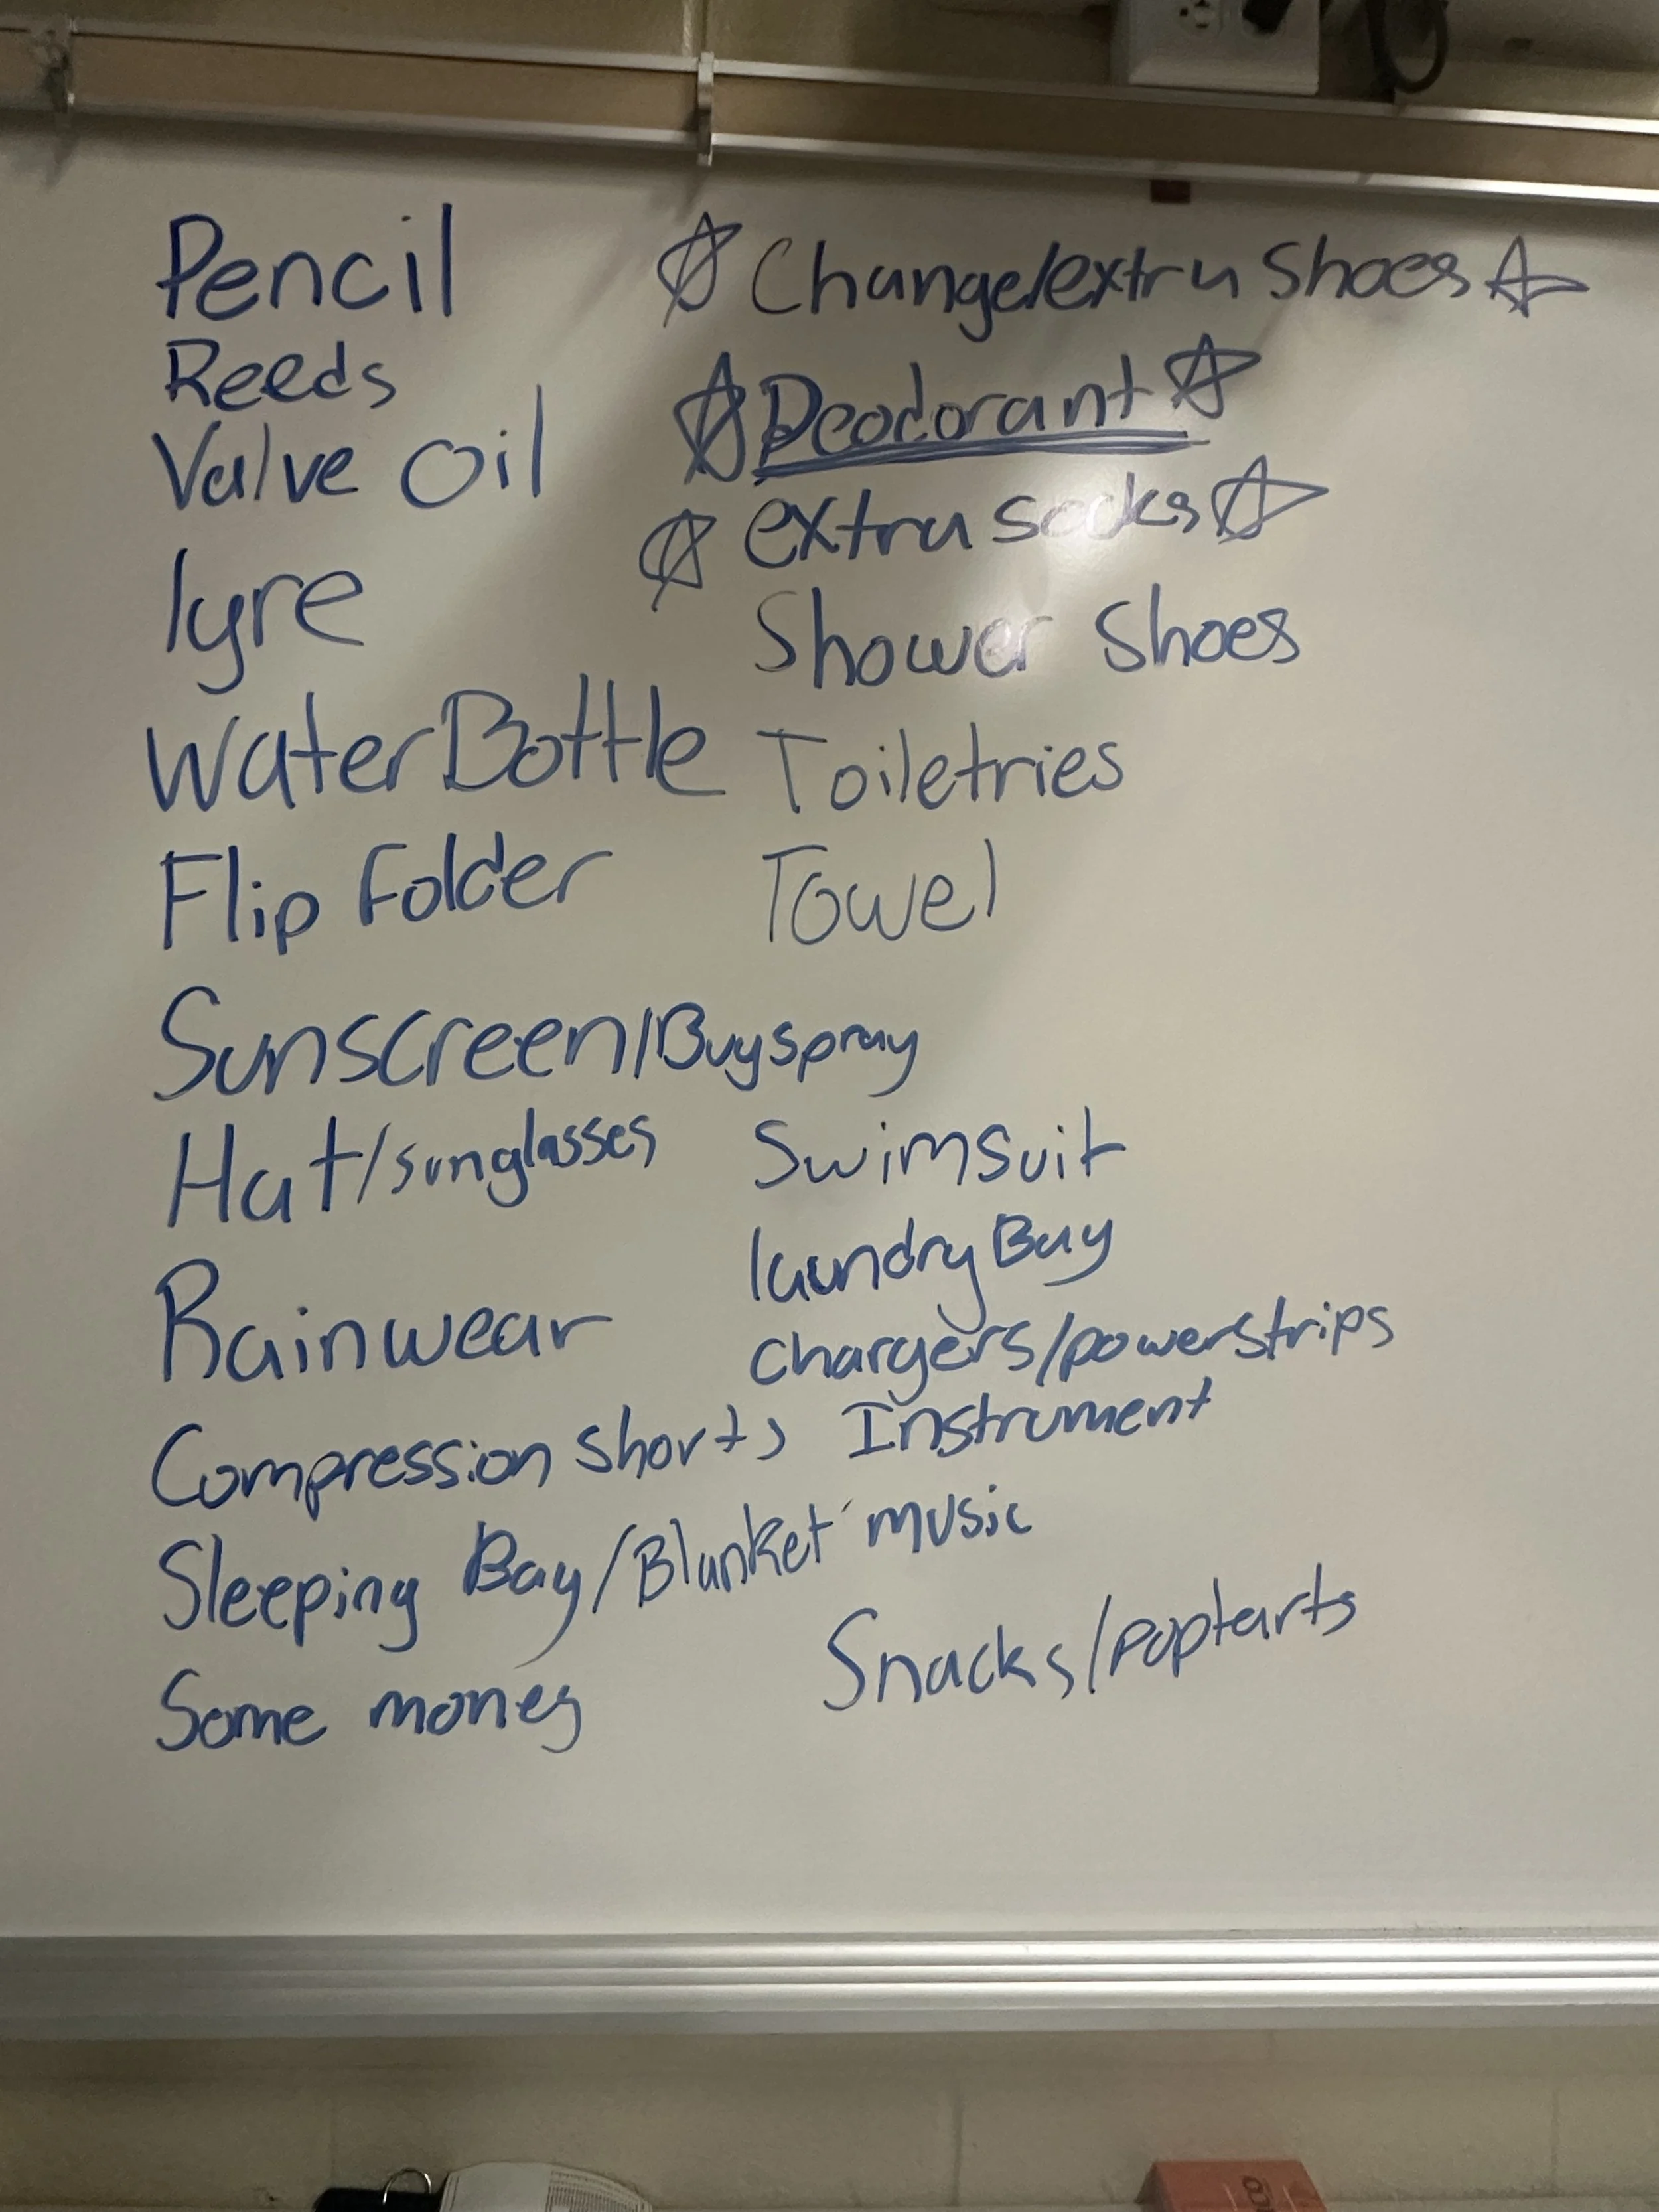 Pencil
Reeds
Valve Oil
lyre
Water Bottle
Flip Folder
Sunscreen/Bugspray
Hat/sunglasses
Rainwear
Compression shorts
Sleeping Bag/Blanket
Some money
☆ Change/extra shoes ☆
☆ Deodorant ☆
☆ extra socks ☆
Shower Shoes
Toiletries
Towel
Swimsuit
laundry Bag
chargers/powerstrips
Instrument
music
Snacks/poptarts